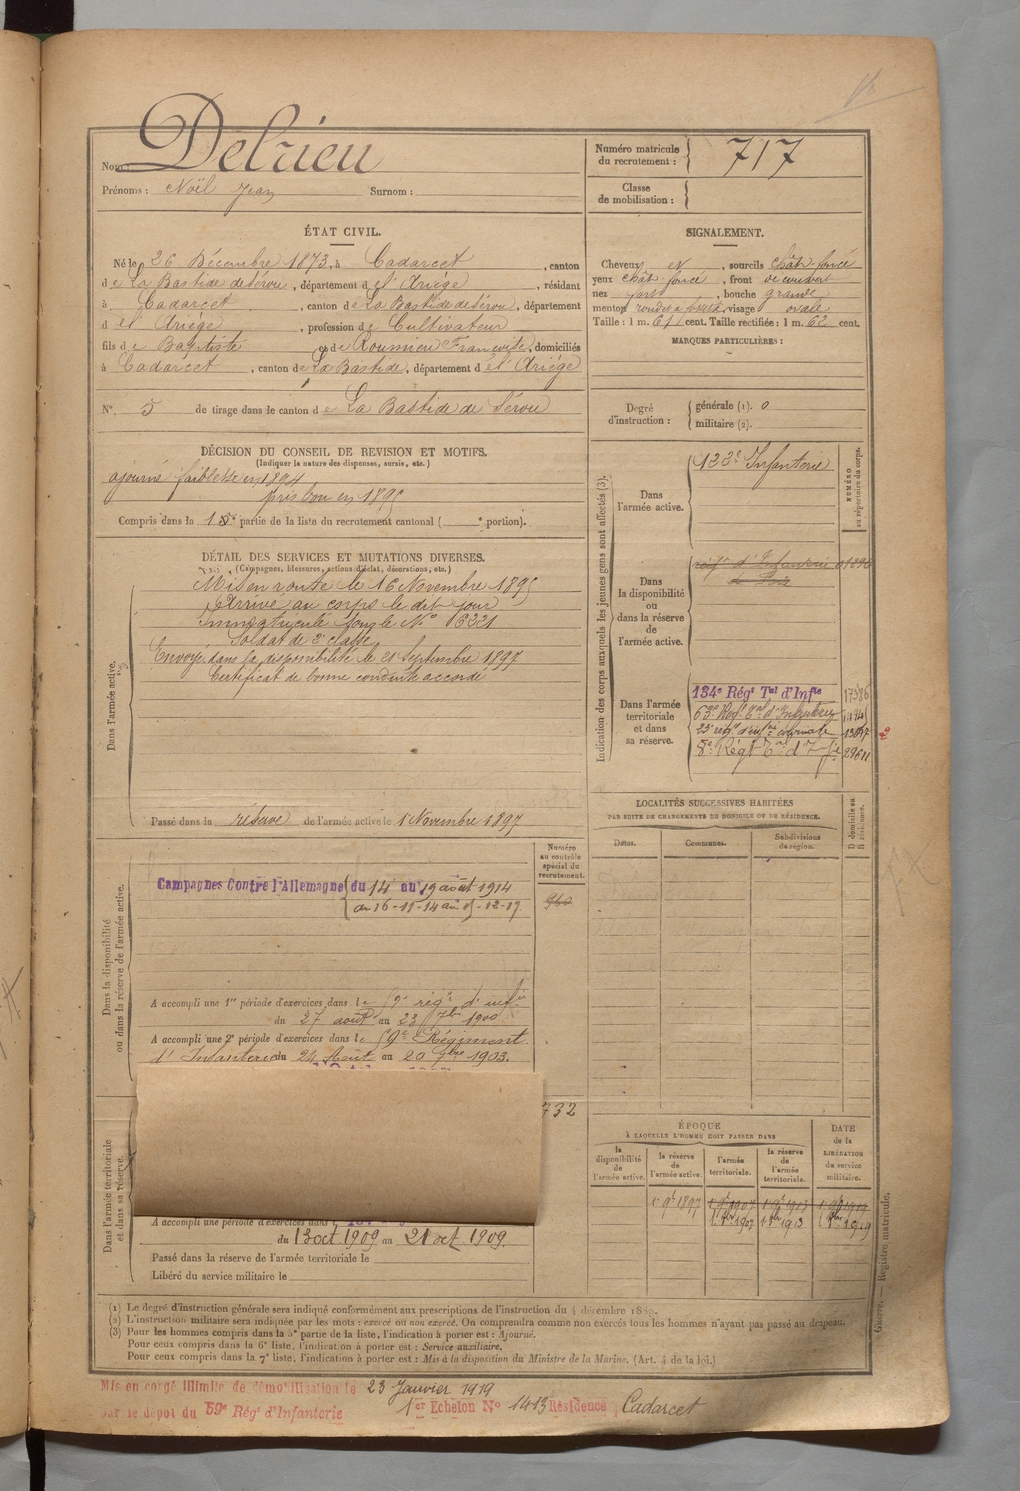 Nom: Delrieu
Prénoms : Noël Jean Surnom :
Numéro matricule du recrutement : 717
Classe de mobilisation :
ÉTAT CIVIL.
Né le 26 Décembre 1873, à Cadarcet, canton
de La Bastide de Sérou, département de l'Ariége, résidant
à Cadarcet, canton de La Bastide de Sérou, département
d el' Ariége, profession de Cultivateur
fils de Baptiste et de Roumieu Françoise, domiciliés
à Cadarcet, canton de La Bastide, département d el' Ariége
N° 5 de tirage dans le canton de La Bastide de Sérou
SIGNALEMENT.
Cheveux et, sourcils chât. foncé
yeux chât. foncé, front découvert
nez fort, bouche grande
menton rond, visage ovale
Taille : 1 m. 61 cent. Taille rectifiée : 1 m. 62 cent.
MARQUES PARTICULIÈRES :
Degré d'instruction : générale (1). 0
militaire (2).
DÉCISION DU CONSEIL DE REVISION ET MOTIFS.
(Indiquer la nature des dispenses, sursis, etc.)
ajourné faiblesse en 1894
pris bon en 1895
Compris dans la partie de la liste du recrutement cantonal ( portion).
DÉTAIL DES SERVICES ET MUTATIONS DIVERSES.
(Campagnes, blessures, actions d'éclat, décorations, etc.)
Dans l'armée active.
Mis en route le 16 Novembre 1895
Arrivé au corps le dit jour
Immatriculé sous le N° 6221
Soldat de 2e classe
Envoyé dans la disponibilité le 21 Septembre 1897
Certificat de bonne conduite accordé
Passé dans la réserve de l'armée active le 1 Novembre 1897
Indication des corps auxquels les jeunes gens sont affectés (3).
NUMÉRO au répertoire du corps.
Dans l'armée active.
122e Infanterie
Dans la disponibilité ou dans la réserve de l'armée active.
d'Infanterie
de Foix
Dans l'armée territoriale et dans sa réserve.
134e Régt Tal d'Infie
63e
8e Régt
LOCALITÉS SUCCESSIVES HABITÉES
PAR SUITE DE CHANGEMENTS DE DOMICILE OU DE RÉSIDENCE.
Dates. Communes. Subdivisions de région. D domicile ou R résidence.
Dans la disponibilité ou dans la réserve de l'armée active.
Numéro au contrôle spécial du recrutement.
Campagnes Contre l'Allemagne du 14 au 19 août 1914
du 16-11-14 au
A accompli une 1re période d'exercices dans le 59e régt d'infie
du 27 août au 23 7bre 1900
A accompli une 2e période d'exercices dans le 59e Régiment
d'Infanterie du 24 Août au 20 7bre 1903.
732
Dans l'armée territoriale et dans sa réserve.
A accompli une période d'exercices dans
du 13 oct 1909 au 21 oct. 1909.
Passé dans la réserve de l'armée territoriale le
Libéré du service militaire le
ÉPOQUE
À LAQUELLE L'HOMME DOIT PASSER DANS
la disponibilité de l'armée active. la réserve de l'armée active. l'armée territoriale. la réserve de l'armée territoriale.
DATE de la LIBÉRATION du service militaire.
1 9e 1897 1 9e 1907 1 9e 1913 1 9e 1919
1er 8bre 1907 1er 8bre 1913 1er 8bre 1919
(1) Le degré d'instruction générale sera indiqué conformément aux prescriptions de l'instruction du 4 décembre 1889.
(2) L'instruction militaire sera indiquée par les mots : exercé ou non exercé. On comprendra comme non exercés tous les hommes n'ayant pas passé au drapeau.
(3) Pour les hommes compris dans la 5e partie de la liste, l'indication à porter est : Ajourné.
Pour ceux compris dans la 6e liste, l'indication à porter est : Service auxiliaire.
Pour ceux compris dans la 7e liste, l'indication à porter est : Mis à la disposition du Ministre de la Marine. (Art. 4 de la loi.)
Guerre. — Registre matricule.
Mis en congé illimité de démobilisation le 23 Janvier 1919
par le dépôt du 59e Régt d'Infanterie 1er Echelon N° 1413 Résidence Cadarcet